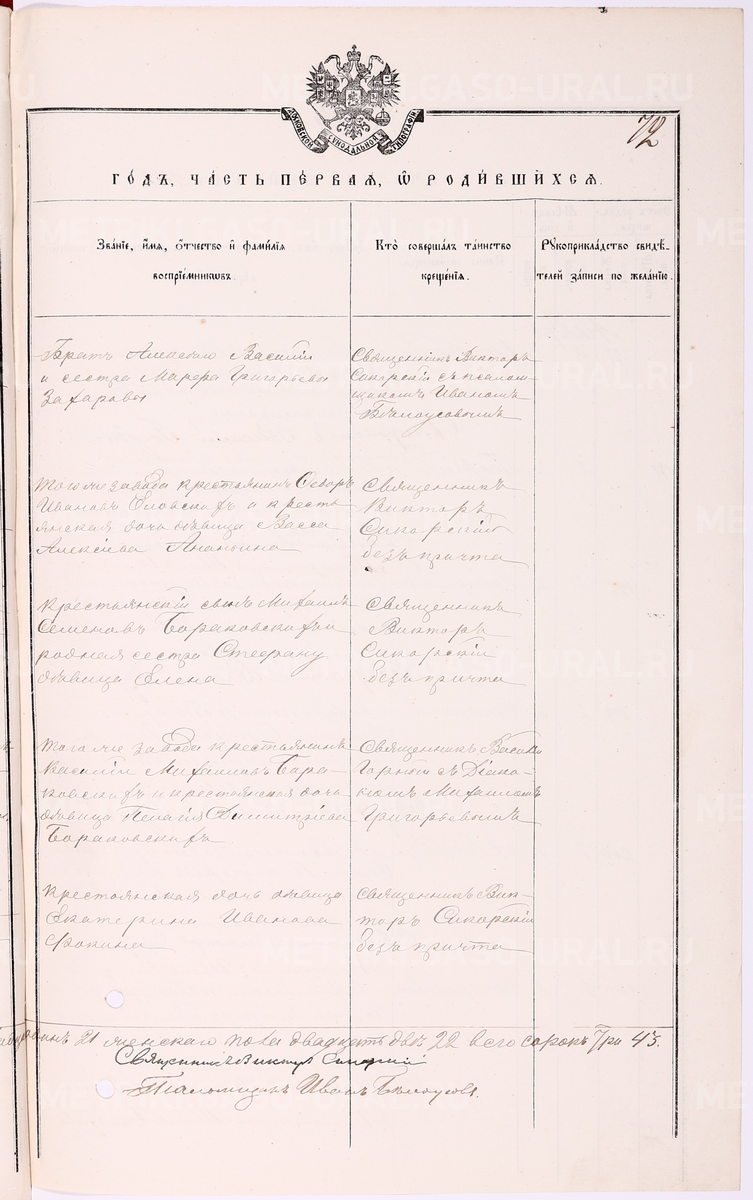 МОСКОВСКОЙ СѴНОДАЛЬНОЙ ТИПОГРАФІИ
72
ГО́ДЪ, ЧА́СТЬ ПЕ́РВАЯ, Ѡ҆ РОДИ́ВШИХСЯ.
Зва́нїе, и҆́мя, ѻ҆́тчество и҆ фами́лїя
воспрїе́мникѡвъ.
Кто̀ соверша́лъ та́инство
креще́нїя.
Рꙋкоприкла́дство свидѣ́-
телей за́писи по жела́нїю.
Братъ Алексѣю Василій
и сестра Григорьевы
Захаровы
Священникъ Викторъ
Сикорскій съ псалом-
щикомъ Иваномъ
Бѣлоусовымъ
Того же завода крестьянинъ Ѳедоръ
Ивановъ Еловскихъ и кресть
янская дочь дѣвица Васса
Алексѣева Ананьина
Священникъ
Викторъ
Сикорскій
безъ причта
Крестьянскій сынъ Михаилъ
Семеновъ Бораковскихъ и
родная сестра Стефану
дѣвица Елена
Священникъ
Викторъ
Сикорскій
безъ причта
Того же завода крестьянинъ
Василій Михаиловъ Бора-
ковскихъ и крестьянская дочь
дѣвица Пелагія Димитріева
Бораковскихъ
Священникъ
Горный съ Діако-
номъ Михаиломъ
Григорьевымъ
Крестьянская дочь дѣвица
Екатерина Иванова
Фокина
Священникъ Вик-
торъ Сикорскій
безъ причта
21 женскаго пола двадцать два 22 всего сорокъ три 43.
Священникъ Викторъ Сикорскій
Псаломщикъ Иванъ Бѣлоусовъ.
METRICS.GASO-URAL.RU